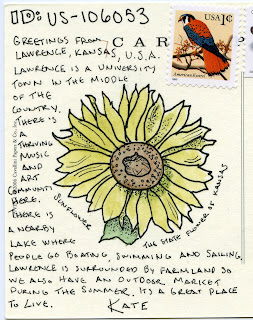 ID: US-106053
GREETINGS FROM
LAWRENCE, KANSAS, U.S.A.
CAR
LAWRENCE IS A UNIVERSITY
TOWN IN THE MIDDLE
OF THE
COUNTRY.
THERE IS
A
THRIVING
MUSIC
AND
ART
COMMUNITY
HERE.
THERE IS
A NEARBY
LAKE WHERE
PEOPLE GO BOATING, SWIMMING AND SAILING.
LAWRENCE IS SURROUNDED BY FARMLAND SO
WE ALSO HAVE AN OUTDOOR MARKET
DURING THE SUMMER. IT'S A GREAT PLACE
TO LIVE. KATE
SUNFLOWER
THE STATE FLOWER OF KANSAS
USA 1¢
American Kestrel